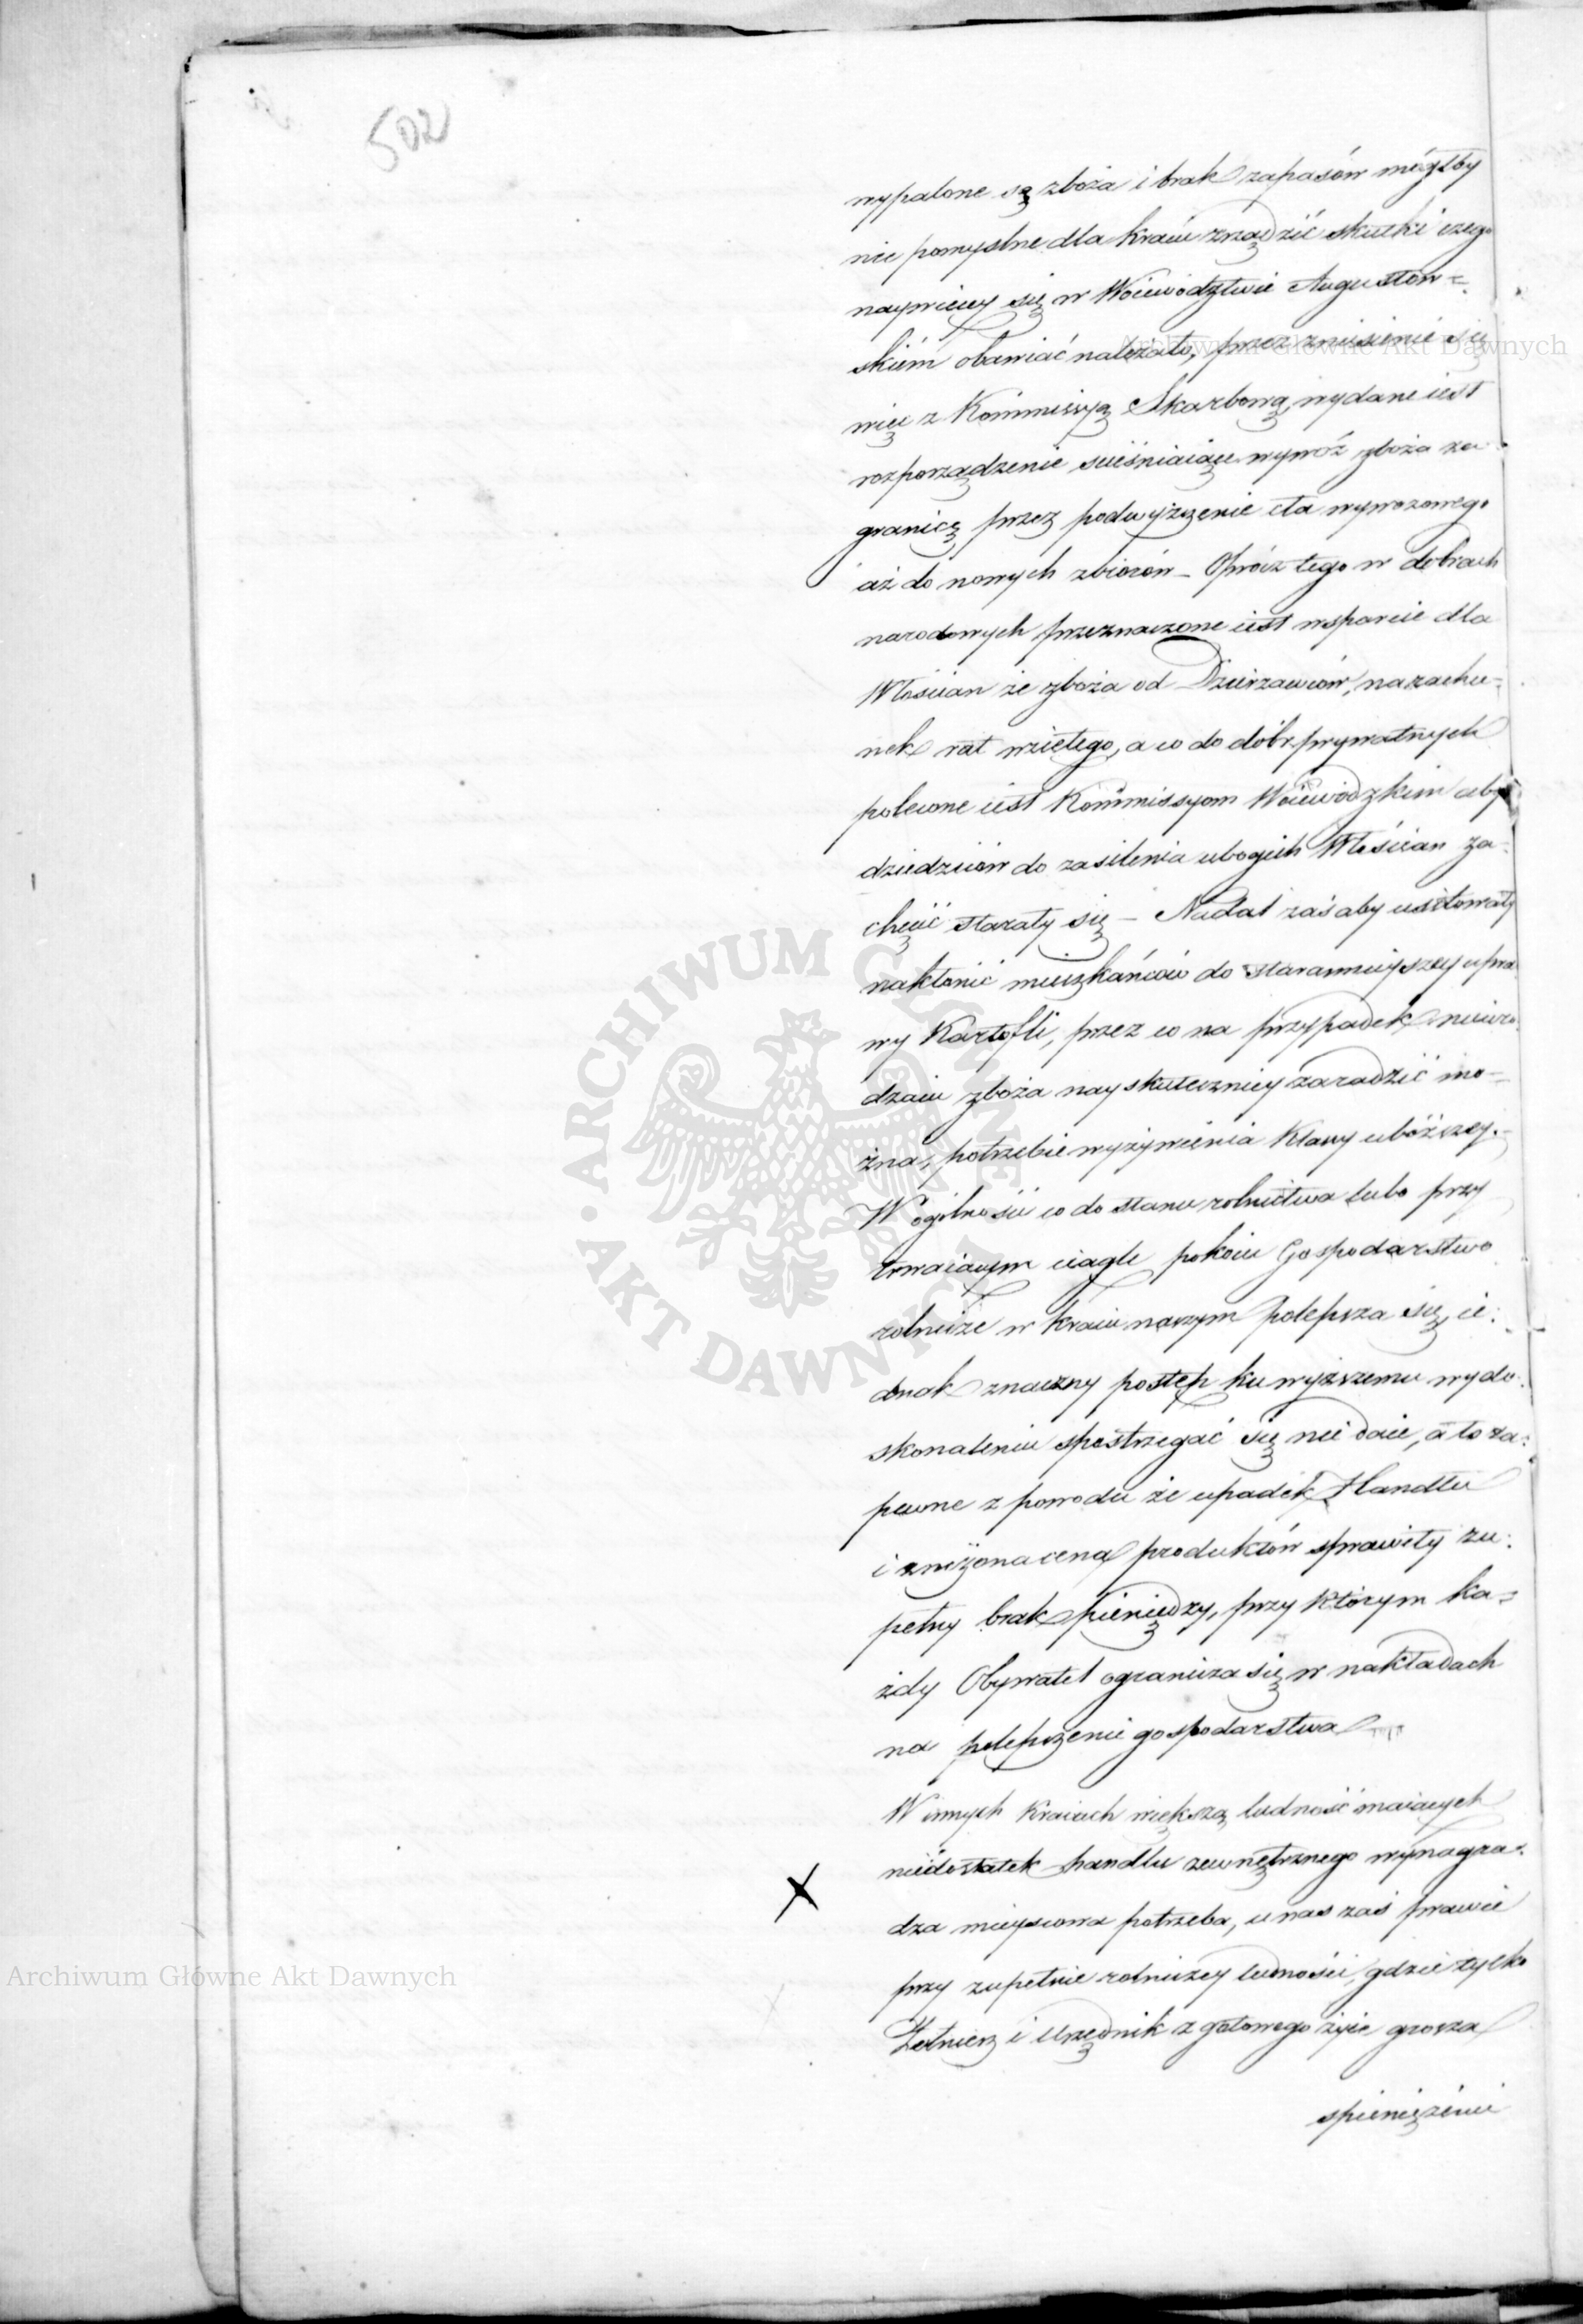 502
wypalone są zboża i brak zapasów mógłby
nie pomyslne dla kraiu zrządzić skutki czego
naywięcey się w Woiewództwie Augustow=
skiém obawiać należało, przez zniesienie się
więc z Kommissyą Skarbową, wydane iest
rozporządzenie scieśniaiące wywóz zboża za
granicę przez podwyższenie cła wywozowego
aż do nowych zbiorów _ Oprócz tego w dobrach
narodowych przeznaczone iest wsparcie dla
Włościan ze zboża od Dzierżawców, na rachu=
nek rat wziętego, a co do dóbr prywatnych
polecone iest Kommissyom Woiewódzkim aby
dziedziców do zasilenia ubogich Włościan za=
chęcić starały się _ Nadal zaś aby usiłowały
nakłonić mieszkańców do starannieyszey upra
wy Kartofli, przez co na przypadek nieuro
dzaiu zboża nayskuteczniey zaradzić mo=
żna, potrzebie wyżywienia Klassy uboższey._
W ogólności co do stanu rolnictwa lubo przy
trwaiącym ciągle pokoiu Gospodarstwo
rolnicze w kraiu naszym polepsza się, ie=
dnak znaczny postęp ku wyższemu wydo=
skonaleniu spostrzegać się nie daie, a to za=
pewne z powodu że upadek Handlu
i zniżona cena produktów sprawiły zu=
pełny brak pieniędzy, przy którym ka=
żdy Obywatel ogranicza się w nakładach
na polepszenie gospodarstwa
W innych Kraiach większą ludność maiących
niedostatek handlu zewnętrznego wynagra=
dza mieyscowa potrzeba, u nas zaś prawie
przy zupełnie rolniczey ludności, gdzie tylko
Żołnierz i Urzędnik z gotowego żyie grosza
spieniężenie
Archiwum Główne Akt Dawnych
Archiwum Główne Akt Dawnych
ARCHIWUM GŁÓWNE
AKT DAWNYCH